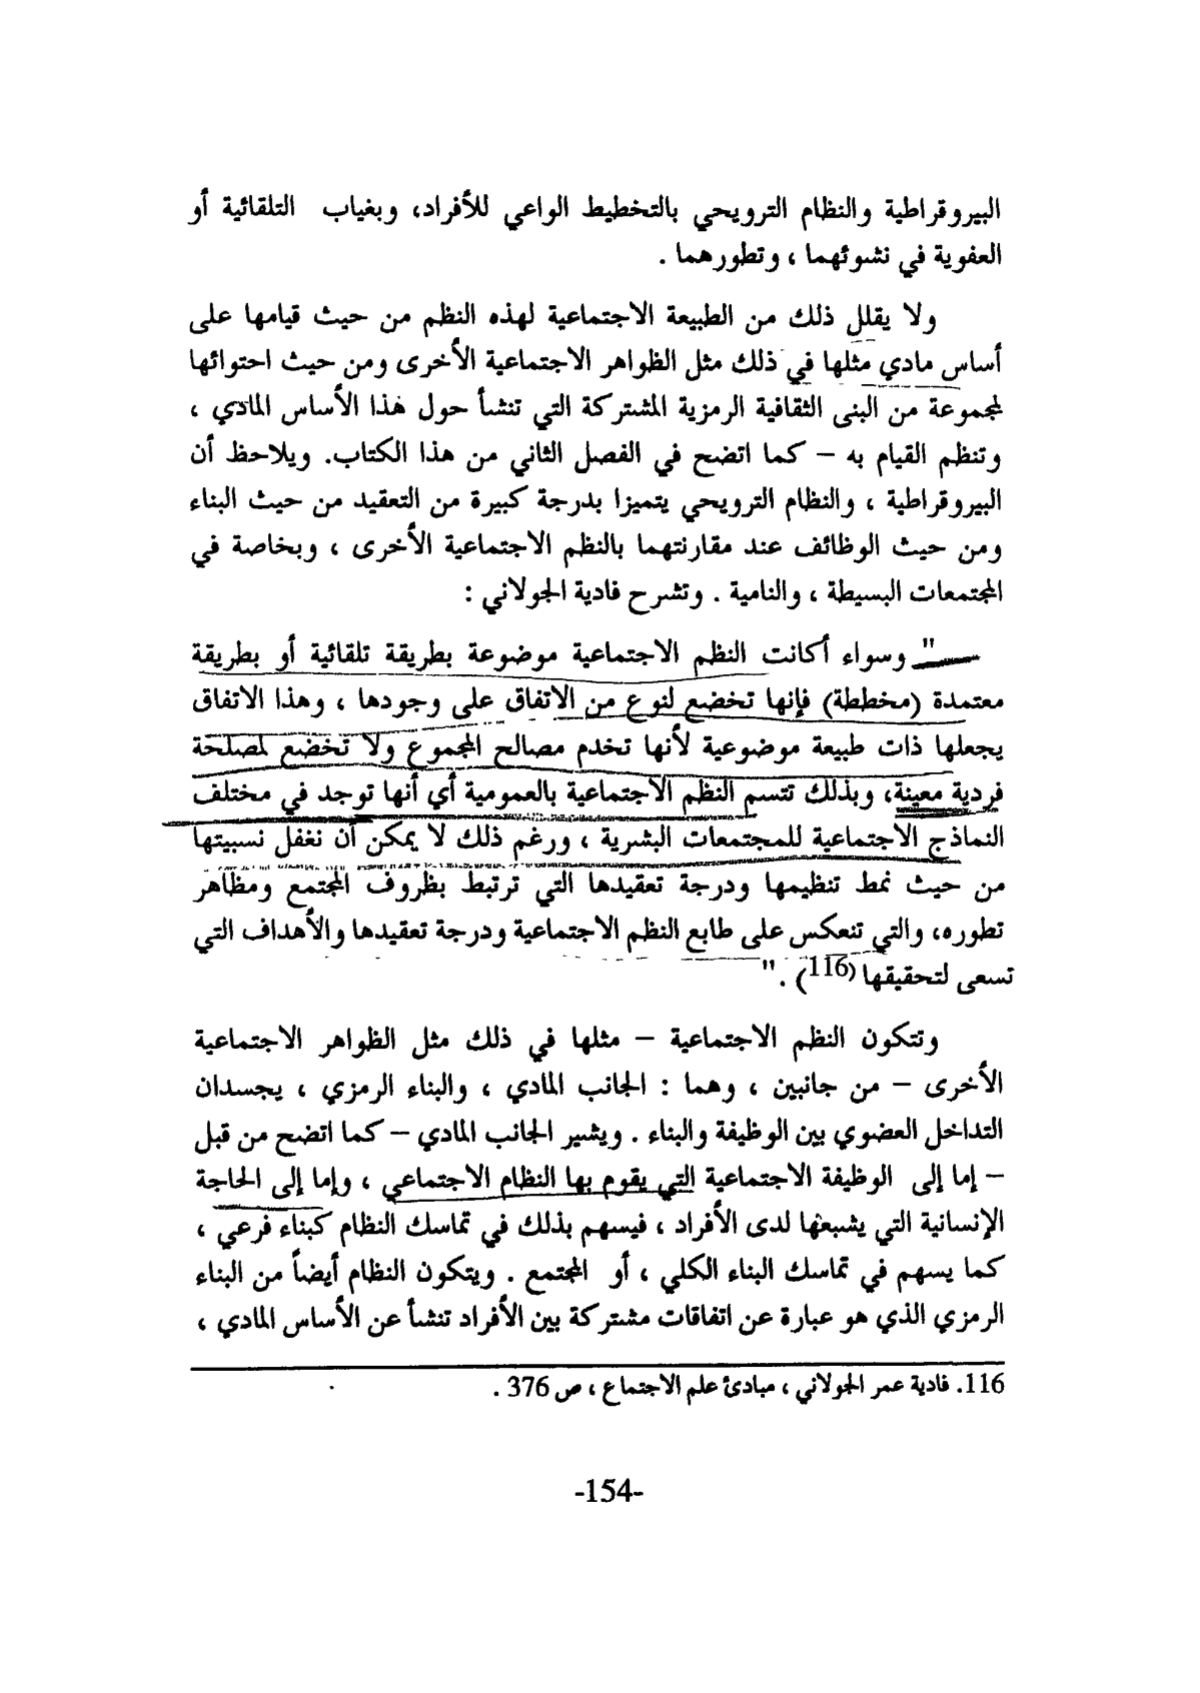 البيروقراطية والنظام الترويحي بالتخطيط الواعي للأفراد، وبغياب التلقائية أو
العفوية في نشوئهما ، وتطورهما .
ولا يقلل ذلك من الطبيعة الاجتماعية لهذه النظم من حيث قيامها على
أساس مادي مثلها في ذلك مثل الظواهر الاجتماعية الأخرى ومن حيث احتوائها
لمجموعة من البنى الثقافية الرمزية المشتركة التي تنشأ حول هذا الأساس المادي ،
وتنظم القيام به – كما اتضح في الفصل الثاني من هذا الكتاب. ويلاحظ أن
البيروقراطية ، والنظام الترويحي يتميزا بدرجة كبيرة من التعقيد من حيث البناء
ومن حيث الوظائف عند مقارنتهما بالنظم الاجتماعية الأخرى ، وبخاصة في
المجتمعات البسيطة ، والنامية . وتشرح فادية الجولاني :
" وسواء أكانت النظم الاجتماعية موضوعة بطريقة تلقائية أو بطريقة
معتمدة (مخططة) فإنها تخضع لنوع من الاتفاق على وجودها ، وهذا الاتفاق
يجعلها ذات طبيعة موضوعية لأنها تخدم مصالح المجموع ولا تخضع لمصلحة
فردية معينة، وبذلك تتسم النظم الاجتماعية بالعمومية أي أنها توجد في مختلف
النماذج الاجتماعية للمجتمعات البشرية ، ورغم ذلك لا يمكن أن نغفل نسبيتها
من حيث نمط تنظيمها ودرجة تعقيدها التي ترتبط بظروف المجتمع ومظاهر
تطوره، والتي تنعكس على طابع النظم الاجتماعية ودرجة تعقيدها والأهداف التي
تسعى لتحقيقها (116) . "
وتتكون النظم الاجتماعية – مثلها في ذلك مثل الظواهر الاجتماعية
الأخرى – من جانبين ، وهما : الجانب المادي ، والبناء الرمزي ، يجسدان
التداخل العضوي بين الوظيفة والبناء . ويشير الجانب المادي – كما اتضح من قبل
– إما إلى الوظيفة الاجتماعية التي يقوم بها النظام الاجتماعي ، وإما إلى الحاجة
الإنسانية التي يشبعها لدى الأفراد ، فيسهم بذلك في تماسك النظام كبناء فرعي ،
كما يسهم في تماسك البناء الكلي ، أو المجتمع . ويتكون النظام أيضاً من البناء
الرمزي الذي هو عبارة عن اتفاقات مشتركة بين الأفراد تنشأ عن الأساس المادي ،
116. فادية عمر الجولاني ، مبادئ علم الاجتماع ، ص 376 .
-154-